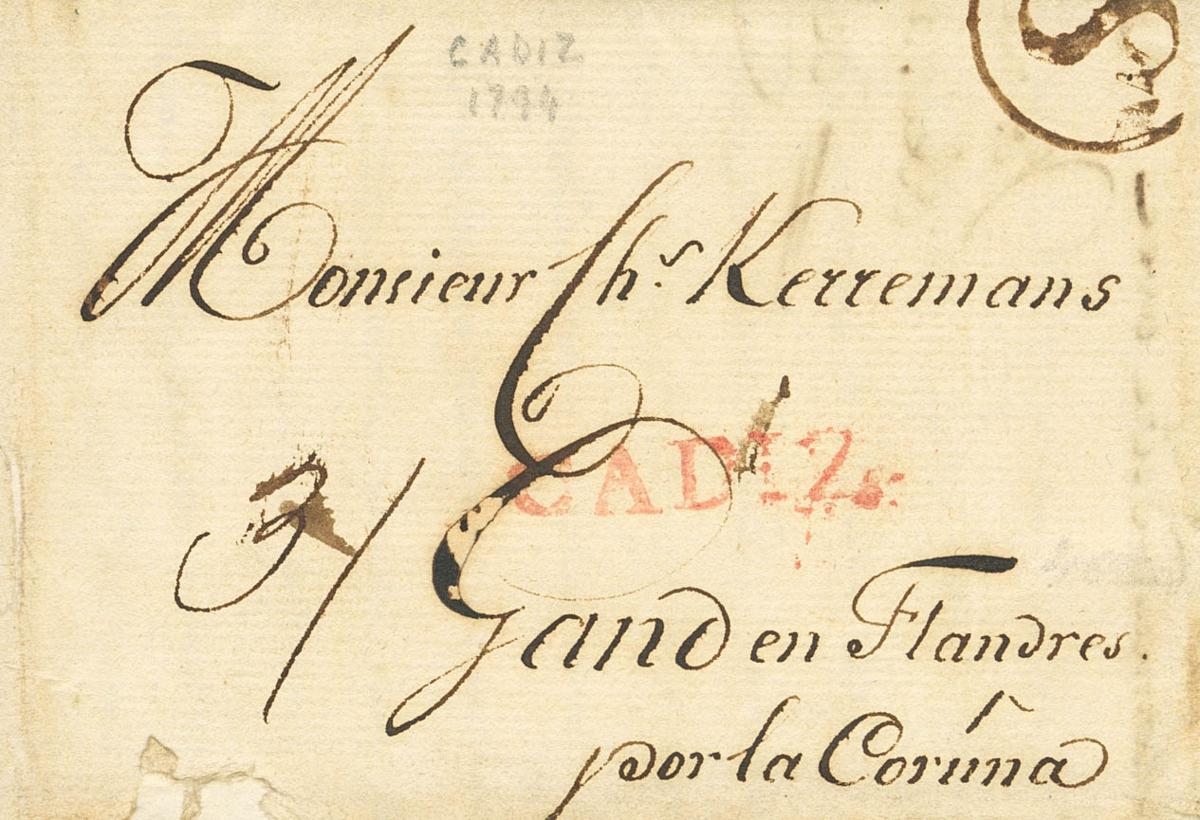 CADIZ
1794
S
Monsieur Chs. Kerremans
CADIZ
Gand en Flandres.
por la Coruna